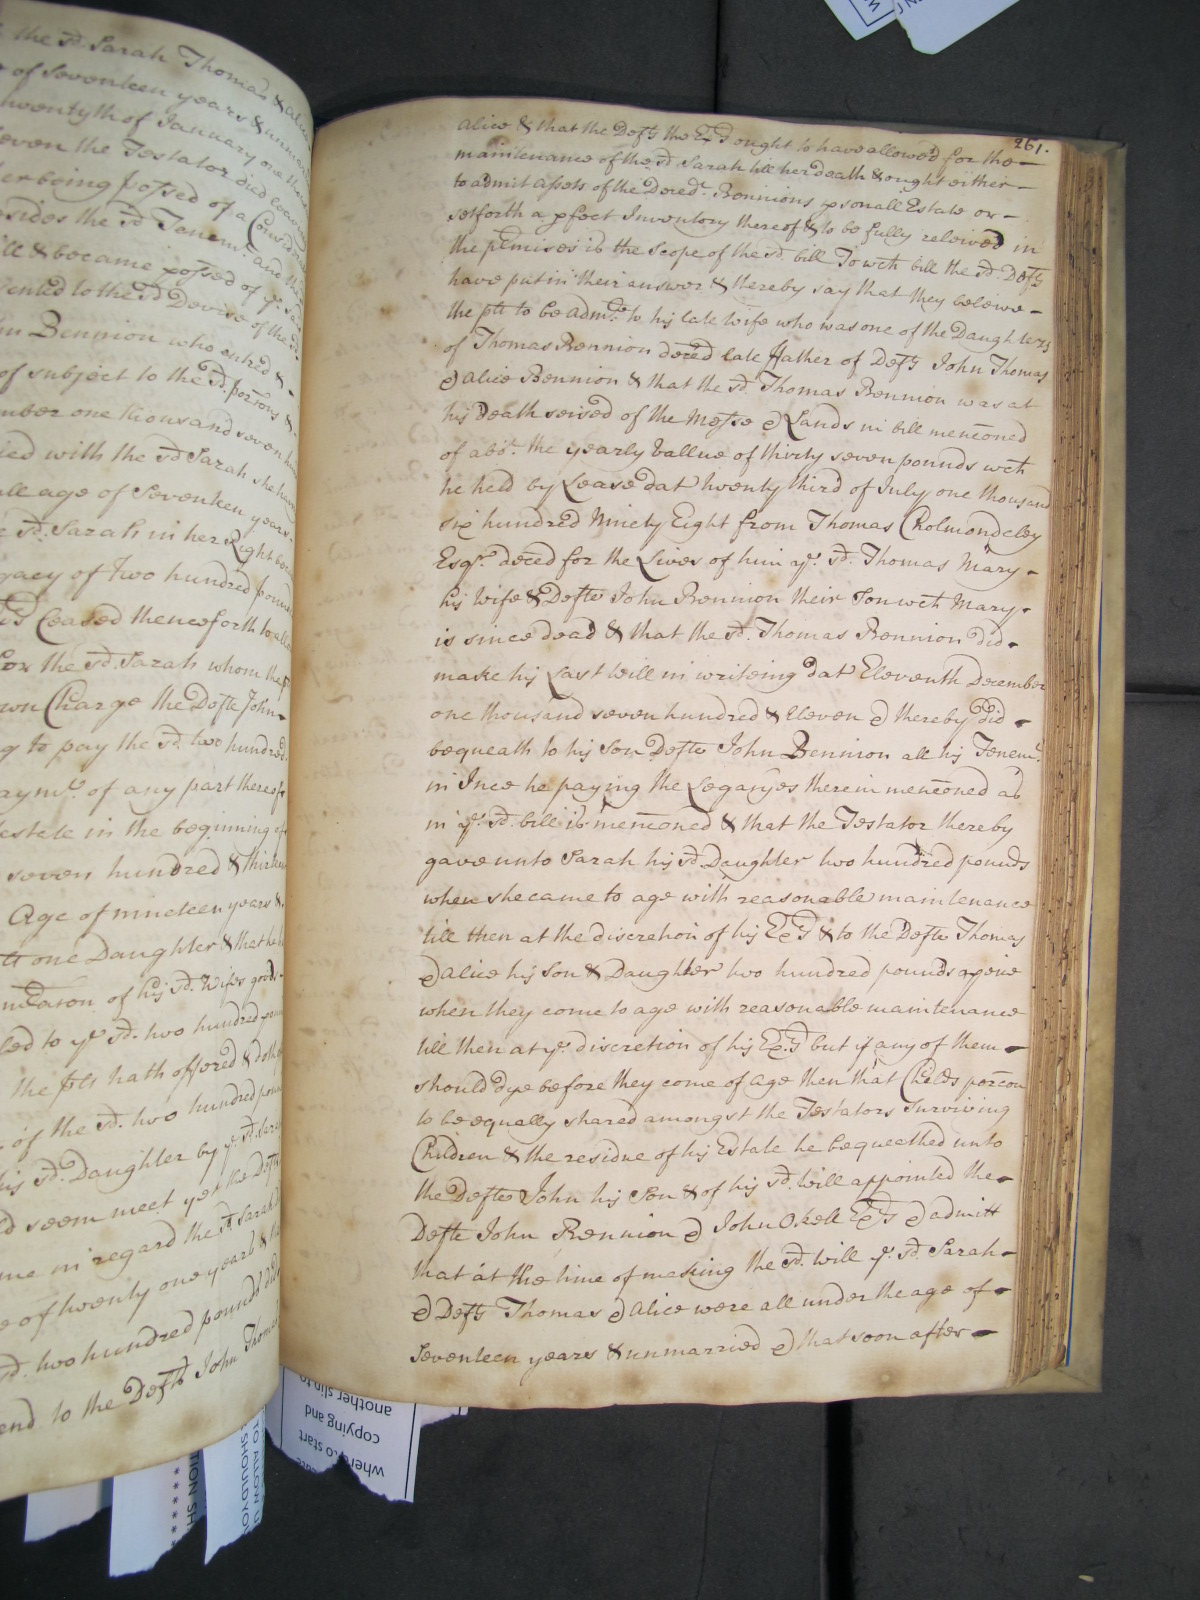 the sd. Sarah Thomas & Alice
of Seventeen years & unmarried
twentyth of January one thous
even the Testator died leaving
being possed of a Consid
sides the sd. Tenemt. and the
ill & became possed of ye. sd.
ented to the sd Devise of the sd.
Bennion who entred &
of subject to the sd. porcõns &
mber one thousand seven hun
ied with the sd Sarah she hav
all age of Seventeen years
sd. Sarah in her Right bec
gacy of two hundred pound
Ceased thenceforth to all
for the sd. Sarah whom the
own Charge the Defte John
g to pay the sd. two hundred
aymt. of any part thereof
estate in the beginning of
seven hundred & thirteen
Age of nineteen years &
one Daughter & that he
of his sd. Wifes goods
led to ye sd. two hundred poun
the plt hath offered & doth
of the sd. two hundred poun
his sd. Daughter by ye. sd. Sara
ld seem meet yet the Defts
me in regard the sd. Sarah
e of twenty one years &
sd. two hundred pounds
end to the Defts John Thomas
261.
Alice & that the Defts the Exrs ought to have allowed for the
maintenance of the sd. Sarah till her death & ought either
to admit Assets of the Decedt. Bennions psonall Estate or
setforth a pfect Inventory thereof & to be fully releived in
the pemises is the Scope of the sd. bill To wch bill the sd. Defts
have put in their answer & thereby say that they beleive
the plt to be admr. to his late Wife who was one of the Daughters
of Thomas Bennion deced late ffather of Defts John Thomas
& Alice Bennion & that the sd. Thomas Bennion was at
his death seised of the Messe & Lands in bill mencõned
of abt. the yearly Vallue of thirty seven pounds wch
he held by Lease dat twenty third of July one thousand
six hundred Ninety Eight from Thomas Cholmondeley
Esqr. deced for the Lives of him ye. sd. Thomas Mary
his Wife & Defte John Bennion their Son wch Mary
is since dead & that the sd. Thomas Bennion did
make his Last Will in writeing dat Eleventh December
one thousand seven hundred & Eleven & thereby did
bequeath to his Son Defte John Bennion all his Tenemt.
in Ince he paying the Legacyes therein mencõned as
in ye. sd. bill is mencõned & that the Testator thereby
gave unto Sarah his sd. Daughter two hundred pounds
when she came to age with reasonable maintenance
till then at the discretion of his Exrs & to the Defte Thomas
& Alice his Son & Daughter two hundred pounds apeice
when they come to age with reasonable maintenance
till then at ye. discretion of his Exrs but if any of them
should dye before they come of age then that Childs porcõn
to be equally shared amongst the Testators Surviving
Children & the residue of his Estate he bequeathed unto
the Defte John his Son & of his sd. Will appointed the
Defte John Bennion & John Okell Exrs & admitt
that at the time of making the sd. Will ye. sd. Sarah
& Defts Thomas & Alice were all under the age of
Seventeen years & unmarried & that soon after
where to start
copying and
another slip to